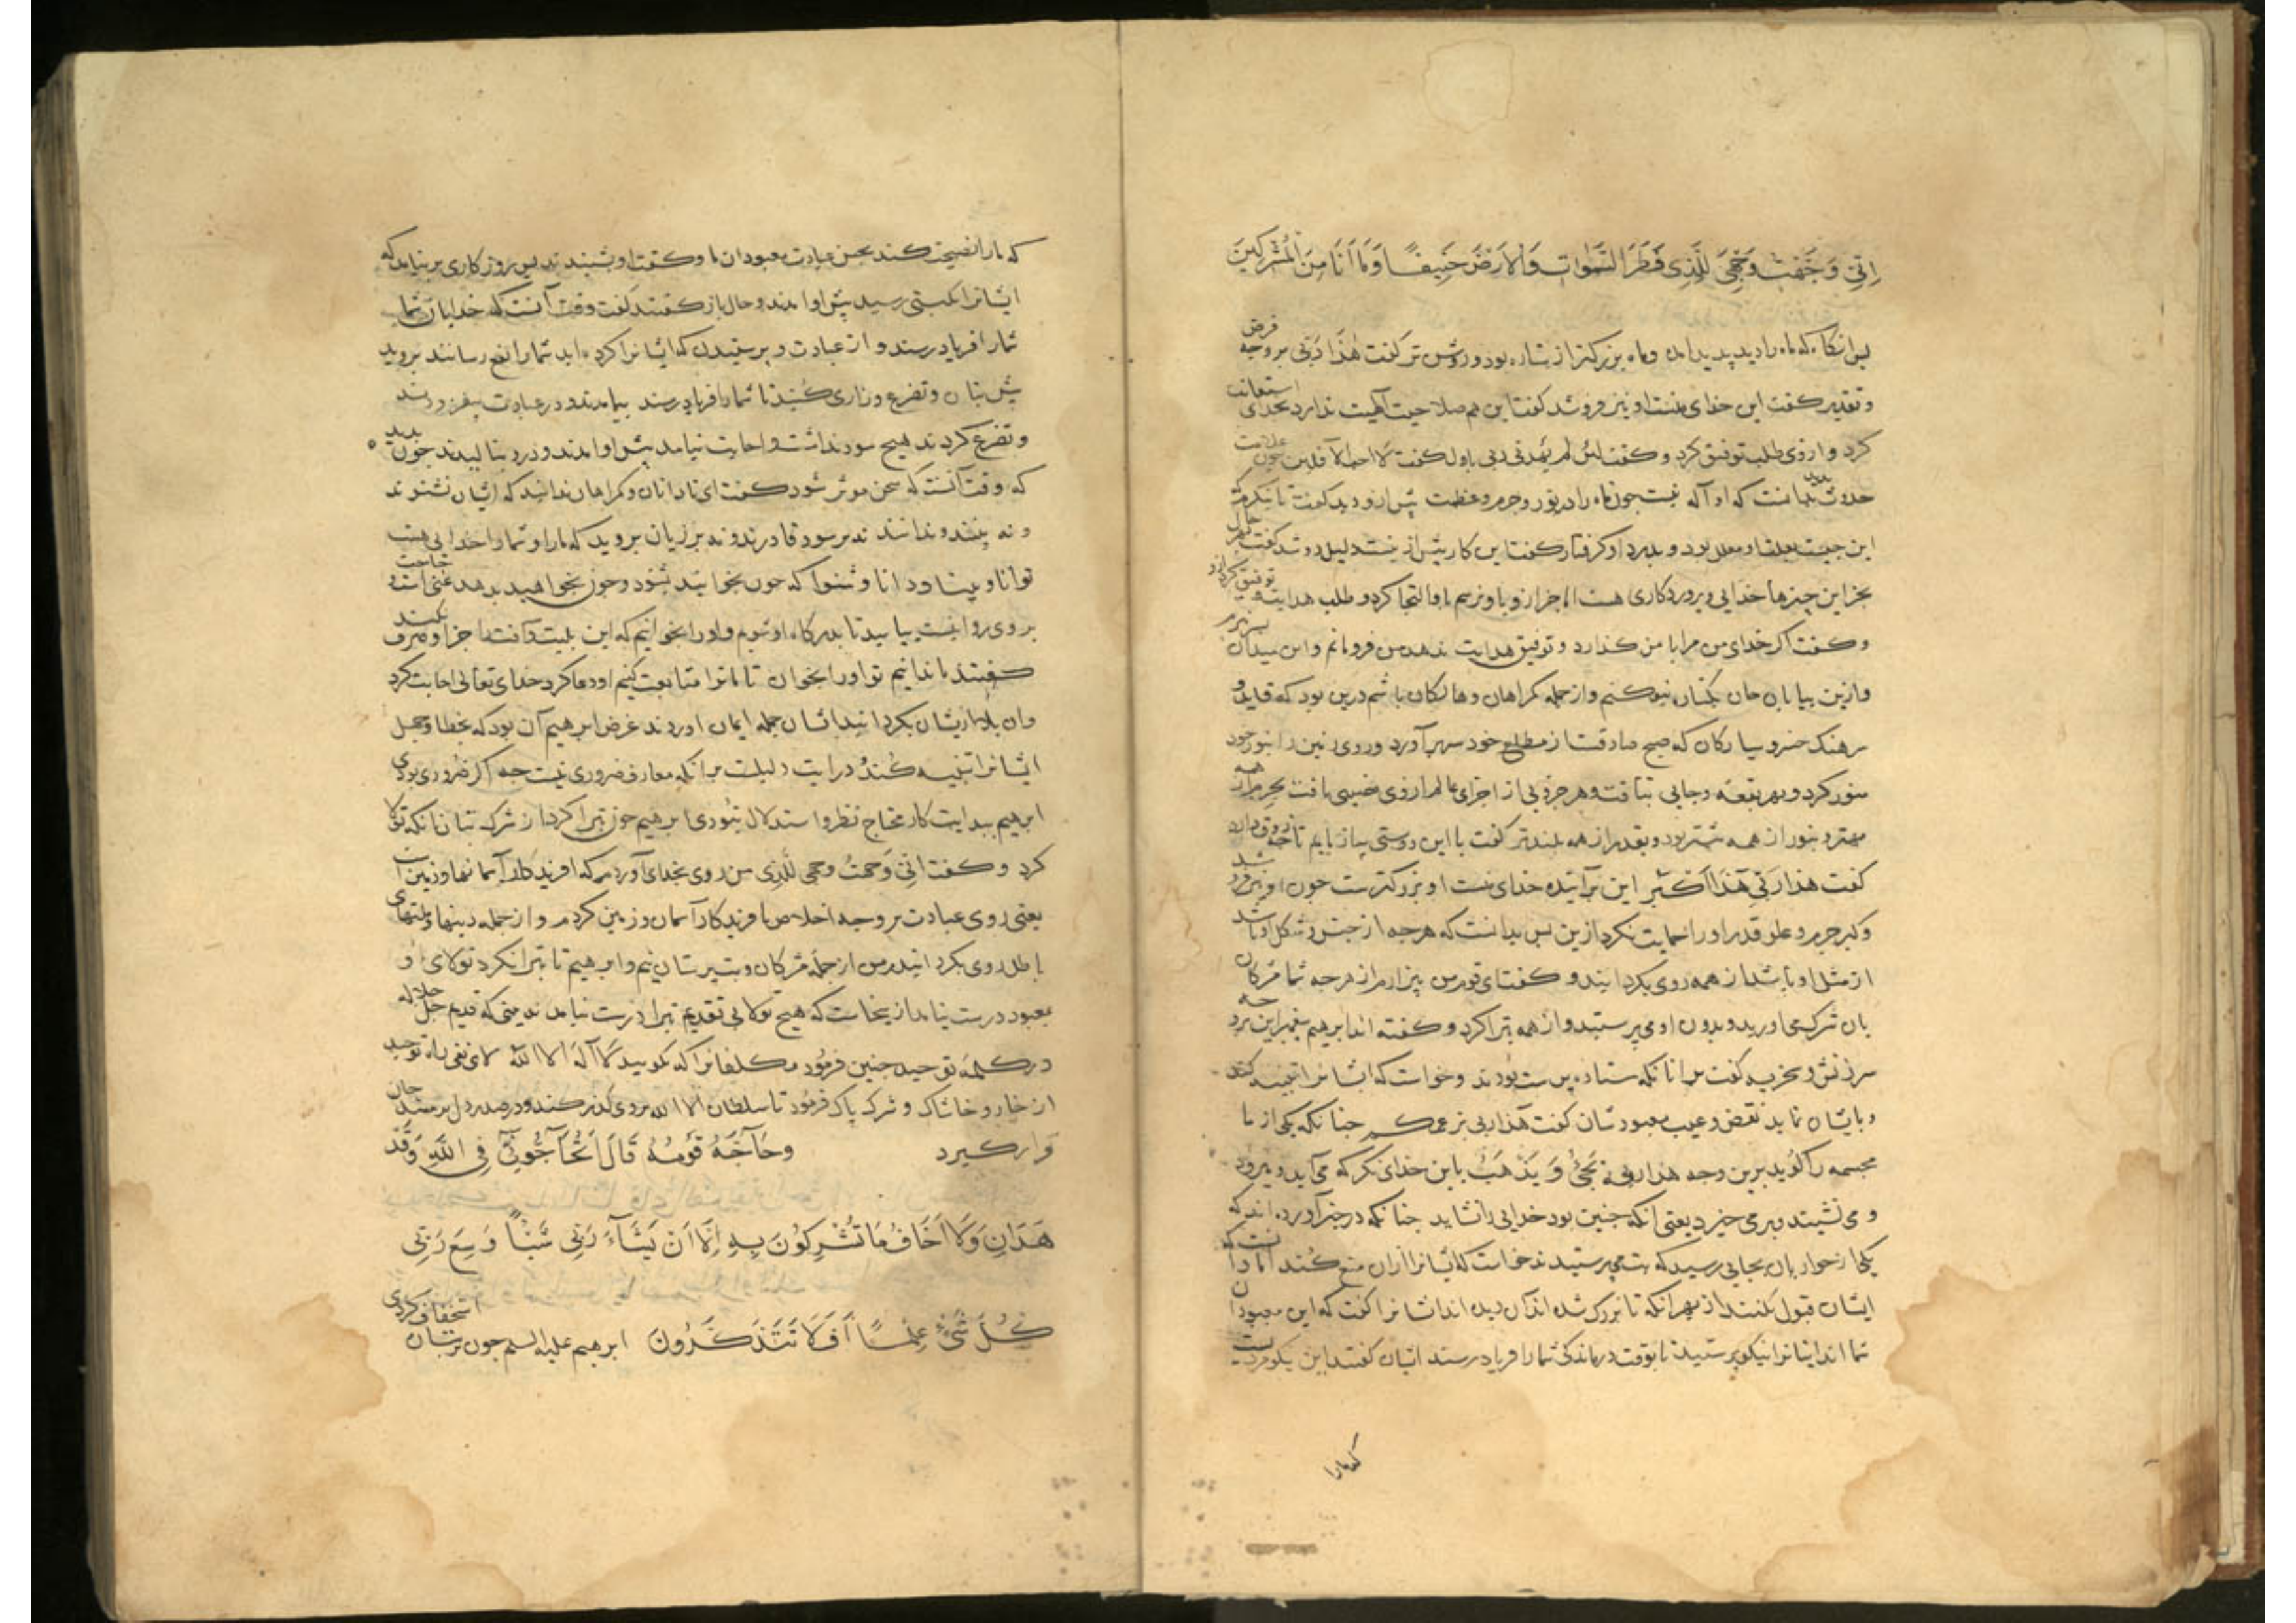 اِنّی وَجَّهْتُ وَجْهِیَ لِلَّذِی فَطَرَ السَّمٰوَاتِ وَالْاَرْضَ حَنِیفًا وَمَا اَنَا مِنَ الْمُشْرِکِینَ
پس انکاه که ماه را دید پدید امد وماه بزرکتر از ستاره بود و روشن تر کفت هٰذَا رَبّی بر وجه فرض
و تقدیر کفت این خدای منست او نیز فرو شد کفت این هم صلاحیت الهیت ندارد بخدای استعانت
کرد و از وی طلب توفیق کرد و کفت لئن لم یهدنی ربی باول کفت لا احب الآفلین چون علامت
حدوث بدید بدانست که او آله نیست چون ماه را در نور وجرم وعظمت بیش ازو دید کفت تا بنکرم
این کار بیش از نیست دلیل دو شد کفت
بجز این چیزها خدایی و پروردکاری هست التجا کرد و طلب هدایت و توفیق کرد ازو
و کفت اکر خدای من مرا با من کذارد و توفیق هدایت ندهد من فرو مانم و این میدان بسر نبرم
وازین بیابان جان بکنار نبوکنم و از جمله کمراهان وهالکان باشم درین بود که قاید و
سرهنک خسرو سیارکان که صبح صادقست از مطلع خود سر برآورد و روی زمین را بنور خود
منور کرد و بهر بقعه وجایی بتافت و هر جزوی از اجزای عالم از وی نصیبی یافت بجرم از همه
مهتر و بنور از همه بیشتر بود و بقدر از همه بلندتر کفت با این دوستی بیازمایم تا چه ذوق دارد
کفت هذا ربّی هَذَا اَکْبَر این برآینده خدای منست او بزرکترست چون او نیز فرو شد
و کبر جرم و علو قدر او را حمایت نکرد ازین پس بدانست که هرچه از جنس و شکل او باشد
از مثل او باشد از همه روی بکردانید و کفت ای قوم من بیزارم از هرچه شما مشرکان
بان شرک می اورید و بدون او می پرستید و از همه تبرا کرد و کفته اند ابرهیم پیغمبر این بر وجه
سرزنش و کفت مر انانکه ستاره پرست بودند و خواست که ایشانرا تنبیه کند
و بایشان نماید نقض و عیب معبودشان کفت هَذا ربی بزعمکم چنانکه یکی از ما
مجسمه را کوید برین وجه هذا ربی یجیُٔ وَ یَذْهَبُ با این خدای نکر که می آید و میرود
و می نشیند و بر می خیزد یعنی انکه چنین بود خدایی را نشاید چنانکه در خبر آورده اند که
یکی از حواریان بجایی رسید که بت می پرستیدند خواست که ایشانرا ازان منع کند اما دانست که
ایشان قبول نکنند از بهر انکه تا بزرک شده اند آن دیده اند ایشانرا کفت که این معبودان
شما اند ایشانرا نیکو پرستید تا بوقت درماندکی شما را فریاد رسند ایشان کفتند این نیکو مردیست
که مارا
که مارا نصیحت کند بحسن عبادت معبودان ما و کفت او شنیدند پس روزکاری بر نیامد که
ایشانرا نکبتی رسید پیش او امدند و حال باز کفتند کفت وقت آنست که خدایان شما
شمارا فریاد رسند و از عبادت و پرستیدن که ایشانرا کرده اید شمارا نفع رسانند بروید
پیش بتان و تضرع و زاری کنید تا شمارا فریاد رسند بیامدند و در عبادت بیفزودند
و تضرع کردند هیچ سود نداشت و اجابت نیامد پیش او امدند و درد بنالیدند چون بدید
که وقت آنست که سخن موثر شود کفت ای نادانان و کمراهان ندانید که ایشان نشنوند
و نه بینند و ندانند نه بر سود قادرند و نه بر زیان بروید که مارا و شمارا خدایی هست
توانا و بینا و دانا و شنوا که چون بخوانید بشنود و چون بخواهید بدهد حاجت
بروی روا نیست بیایید تا بدرکاه او شویم و او را بخوانیم که این بلیت و آفت از ما صرف کند
کفتند ما ندانیم تو او را بخوان تا ما ترا متابعت کنیم او دعا کرد خدای تعالی اجابت کرد
وان بلا ازیشان بکردانید ایشان جمله ایمان اوردند غرض ابرهیم آن بود که بخطا و جهل
ایشانرا تنبیه کند و در ایت دلیلست برانکه معارف ضروری نیست چه اکر ضروری بودی
ابرهیم ببدایت کار محتاج نظر و استدلال نبودی ابرهیم چون تبرا کرد از شرک بتان انکه تولا
کرد و کفت انّی وَجهتُ وجهی لِلّذِی من روی بخدای آوردم که افریدکار آسمانها و زمین است
یعنی روی عبادت بر وجه اخلاص بافریدکار آسمان و زمین کردم و از جمله دینها و ملتهای
باطل روی بکردانیدم من از جمله مشرکان و بت پرستان نیم و ابرهیم تا تبرا نکرد تولای او
بمعبود درست نیامد از ینجاست که هیچ تولا بی تقدیم تبرا درست نیاید نه بینی که قدیم جل جلاله
در کلمهٔ توحید چنین فرمود مکلفانرا که بکویید لا آله الا الله لای نفی راه توحید
از خار و خاشاک و شرک پاک فرمود تا سلطان الا الله بروی کذر کند و در صدر دل بر مسند جان
قرار کیرد وحَاجَّهُ قَوْمُهُ قَالَ اَتُحَاجُّونّی فِی اللّٰهِ وَقَدْ
هَدَانِ وَلَا اَخَافُ مَا تُشْرِکُونَ بِهِ اِلَّا اَنْ یَشَآءَ رَبّی شَیْـًٔا وَسِعَ رَبّی
کُلَّ شَیْءٍ عِلْمًا اَفَلَا تَتَذَکَّرُونَ ابرهیم علیه السلم چون بر بتان استخفاف کردی